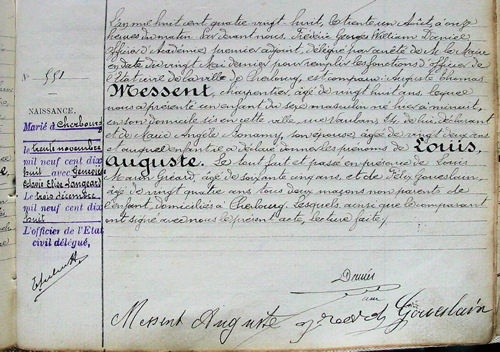 N° 551
NAISSANCE.
Marié à Cherbourg
le trente novembre
mil neuf cent dix
huit avec Geneviève
Marie Elise Langeard
Le trois décembre
mil neuf cent dix
huit
L'officier de l'Etat
civil délégué,
L'an mil huit cent quatre vingt huit, le trente un Août, à onze
heures du matin Par devant nous, Frédéric Georges William Daniel
officier d'Académie premier adjoint, délégué par arrêté de M. le Maire
en date du vingt Mai dernier pour remplir les fonctions d'officier de
l'Etat civil de la ville de Cherbourg, est comparu: Auguste Thomas
Messent, charpentier, âgé de vingt huit ans, lequel
nous a présenté un enfant du sexe masculin né hier à minuit,
en son domicile sis en cette ville, rue Vauban, de lui déclarant
et de Marie Angèle Bonamy, son épouse, âgée de vingt deux ans
et auquel enfant il a déclaré donner les prénoms de Louis,
Auguste. Le tout fait et passé en présence de Louis
Marie Giéard, âgé de soixante cinq ans, et de Félix Goueslain,
âgé de vingt quatre ans tous deux maçons non parents de
l'enfant domiciliés à Cherbourg. Lesquels, ainsi que le comparant
ont signé avec nous le présent acte, lecture faite,
Messent Auguste
Goueslain